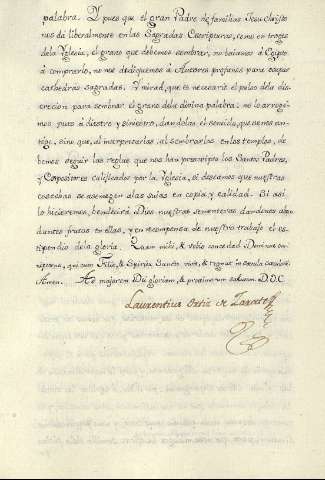 palabra. Y pues que el gran Padre de familias Jesu Christo
nos dà liberalmente en las Sagradas Escripturas, como en troges
de la Yglesia, el grano que debemos sembrar, no baiamos à Egipto
à comprarlo, no me dediquemos à Autores profanos para ocupar
cathedras sagradas. Y mirad, que es necesario el pulso de la dis-
crecion para sembrar el grano de la divina palabra: no lo arroge-
mos puro à diestro y siniestro, dandolas el sentido, que se nos an-
toje, sino que, al interpretarlas, al sembrarlas en los templos, de-
bemos seguir las reglas que nos han prescripto los Santos Padres,
y Expositores calificados por la Yglesia, si deseamos que nuestras
cosechas se asemegen à las suias en copia y calidad. Si asi
lo hicieremos, bendecirà Dios nuestras sementeras dandonos abun-
dantes frutos en ellas, y en recompensa de nuestro trabajo el es-
tipendio de la gloria. Quam mihi, & vobis concedat Dominus om-
nipotens, qui cum Filio, & Spiritu Sancto vivit, & regnat in secula seculor.
Amen. Ad majorem Dei gloriam, & proximorum salutem. D.O.C.
Laurentius Ortiz de Zarate